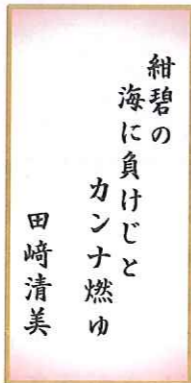 紺碧の
海に負けじと
カンナ燃ゆ
田﨑清美